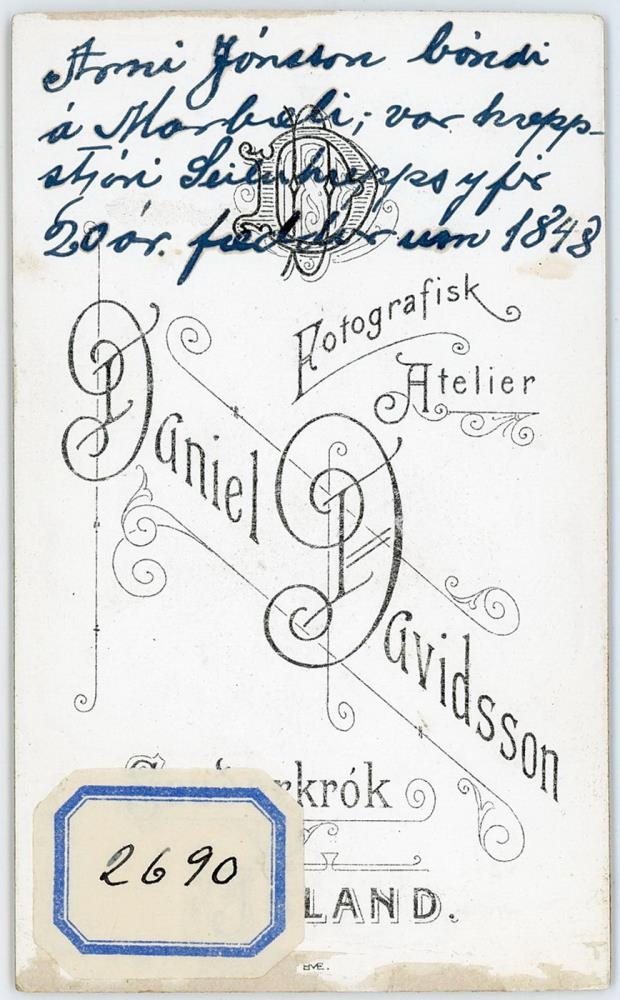 Árni Jónsson bóndi
á Marbæli; var hrepp-
stjóri Seiluhrepps yfir
20 ár. fæddur um 1848
DD
Fotografisk
Atelier
Daniel
Davidsson
rkrók
2690
LAND.